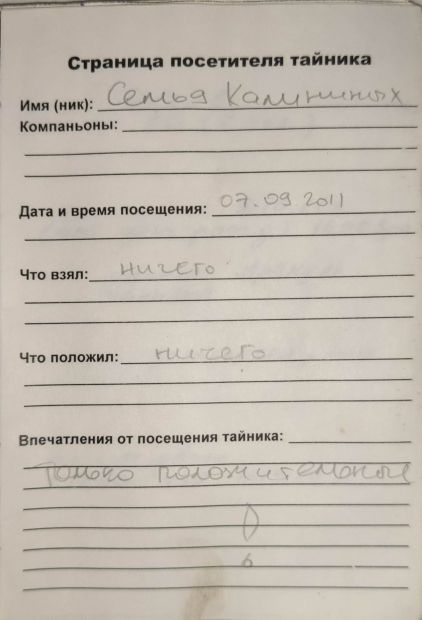 Страница посетителя тайника
Имя (ник): Семья Калининых
Компаньоны:
Дата и время посещения: 07.09.2011
Что взял: ничего
Что положил: ничего
Впечатления от посещения тайника:
Только положительные